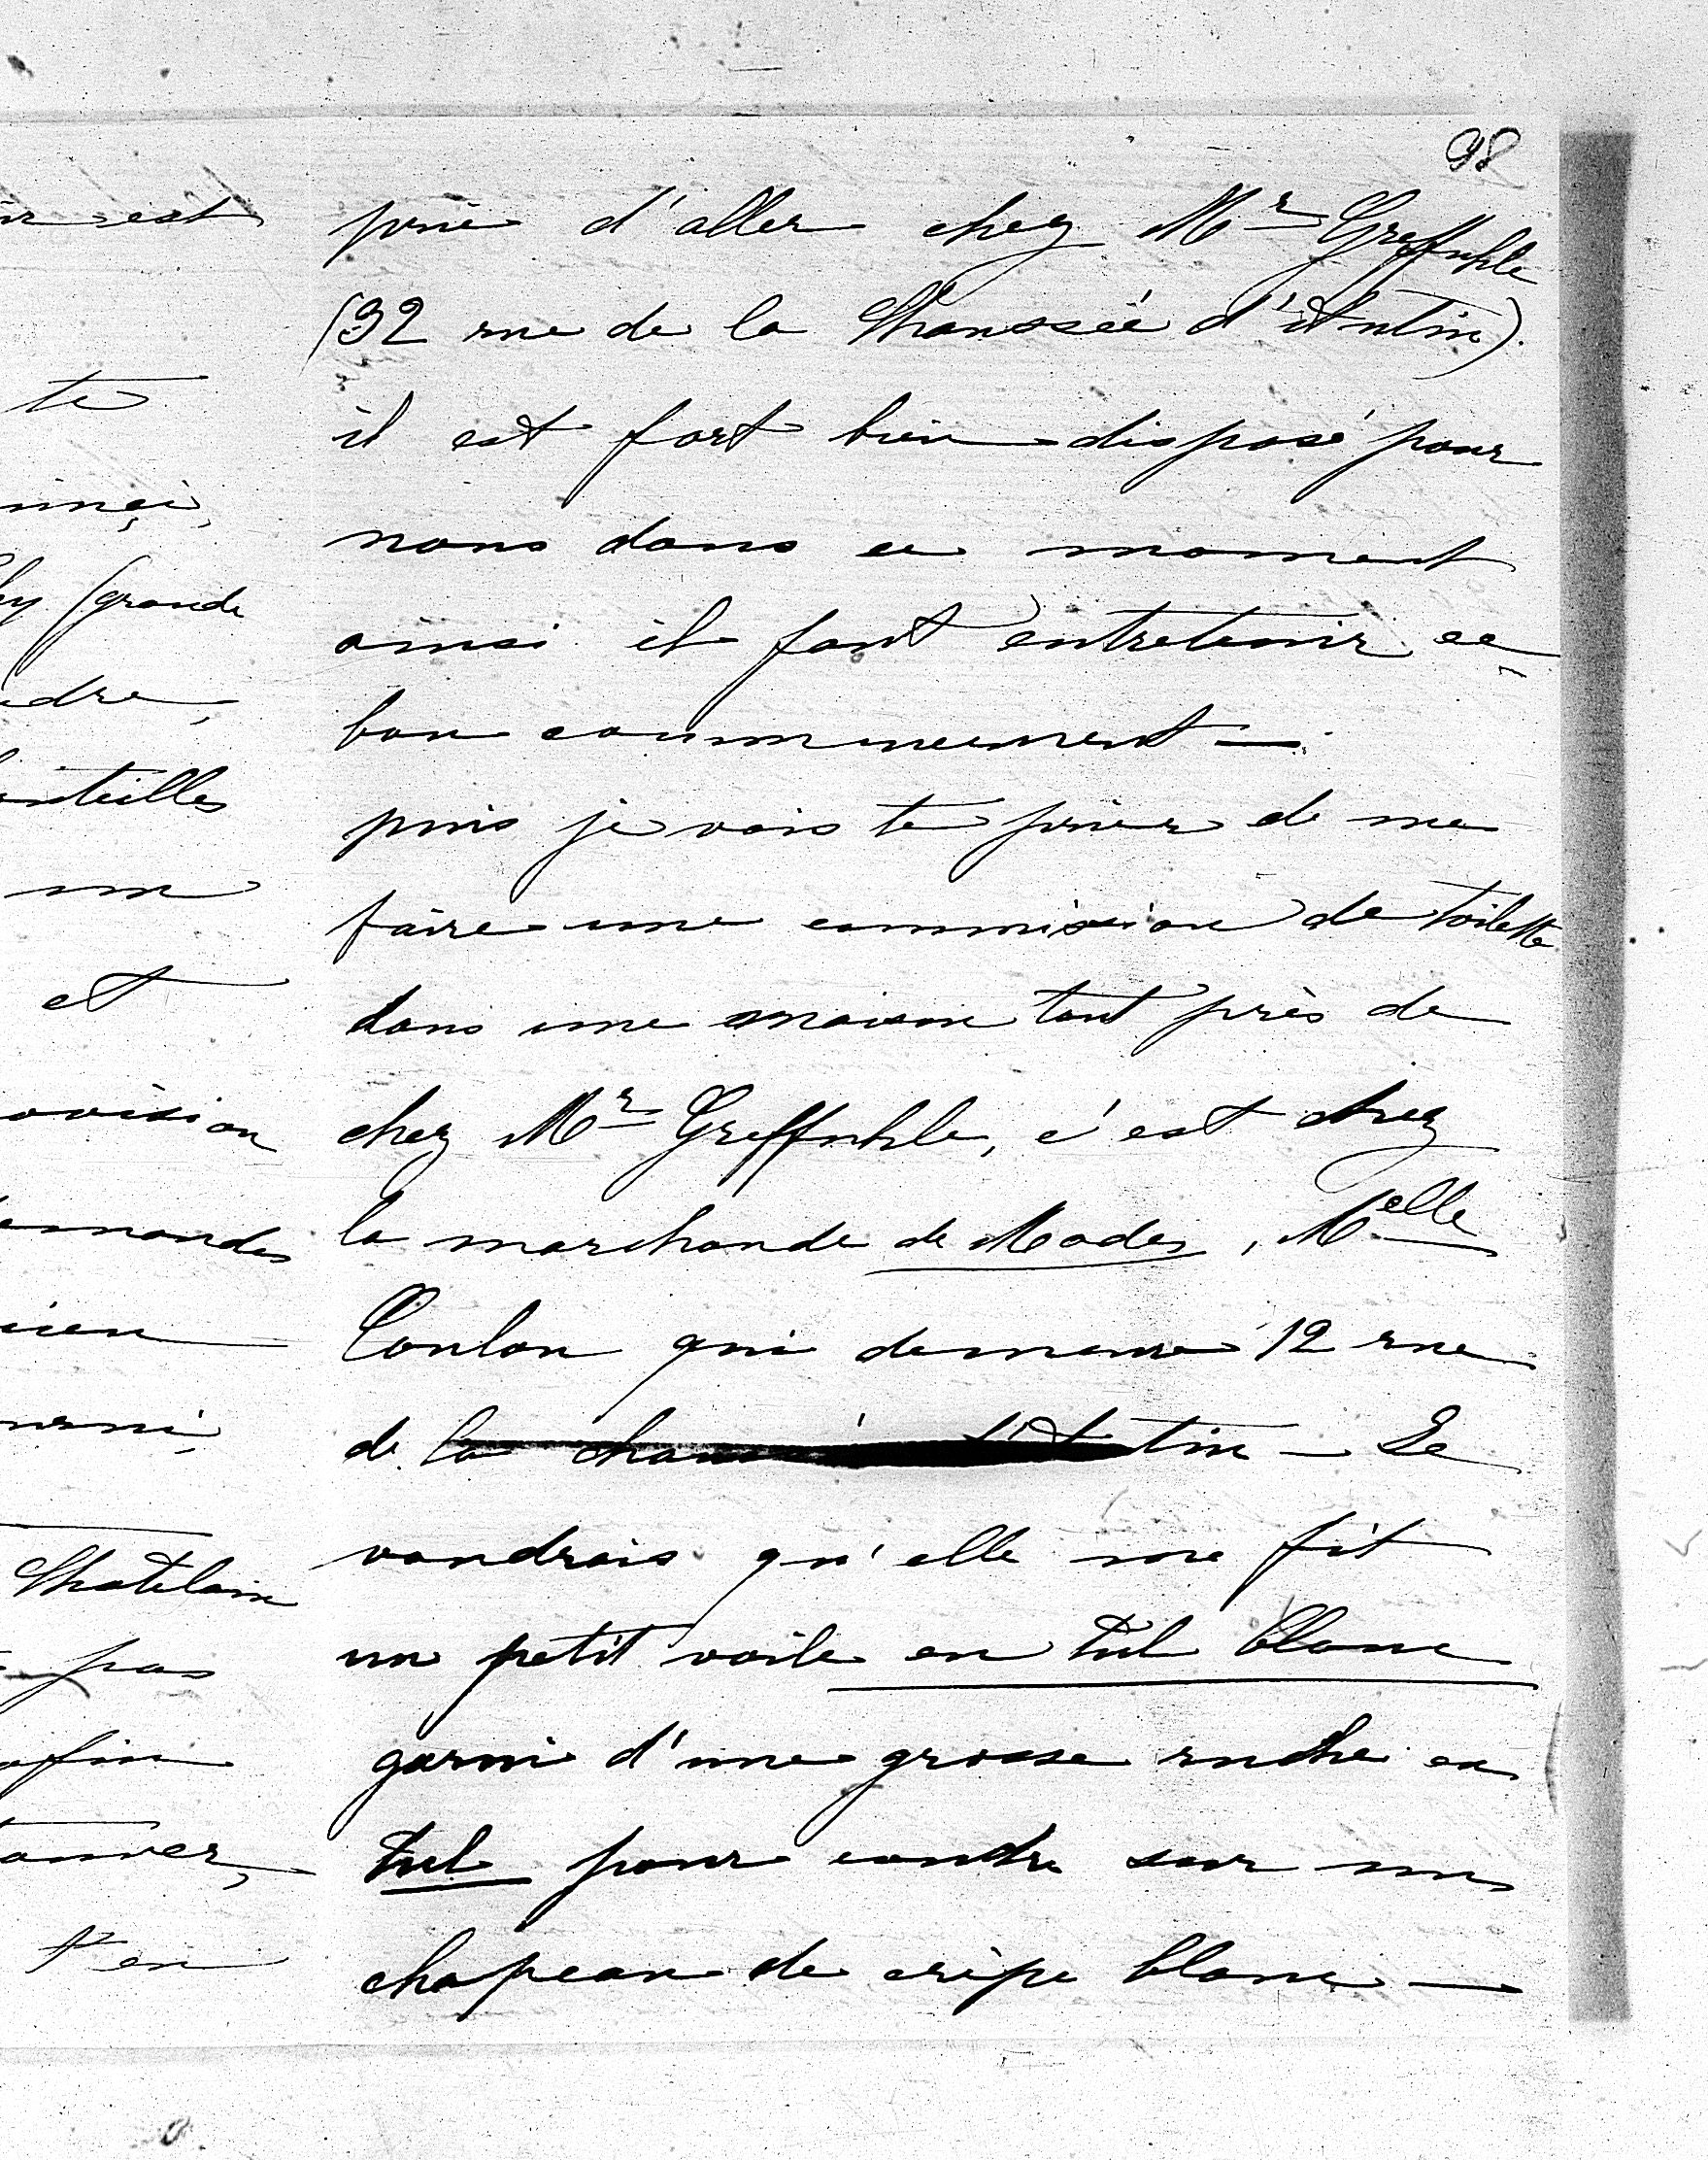 98
prie d'aller chez Mr Greffuhle
(32 rue de la Chaussée d'Antin)
il est fort bien disposé pour
nous dans ce moment
ainsi il faut entretenir ce
bon commencement —
puis je vais te prier de me
faire une commission de toilette
dans une maison tout près de
chez Mr Greffuhle, c'est chez
la marchande de Modes, Melle
Coulon qui demeure 12 rue
de la chaussée d'Antin — Je
voudrais qu'elle me fit
un petit voile en tul blanc
garni d'une grosse ruche en
tul pour coudre sur un
chapeau de crêpe blanc —
est
te
(grande
un
et
Chatelain
pas
t'en